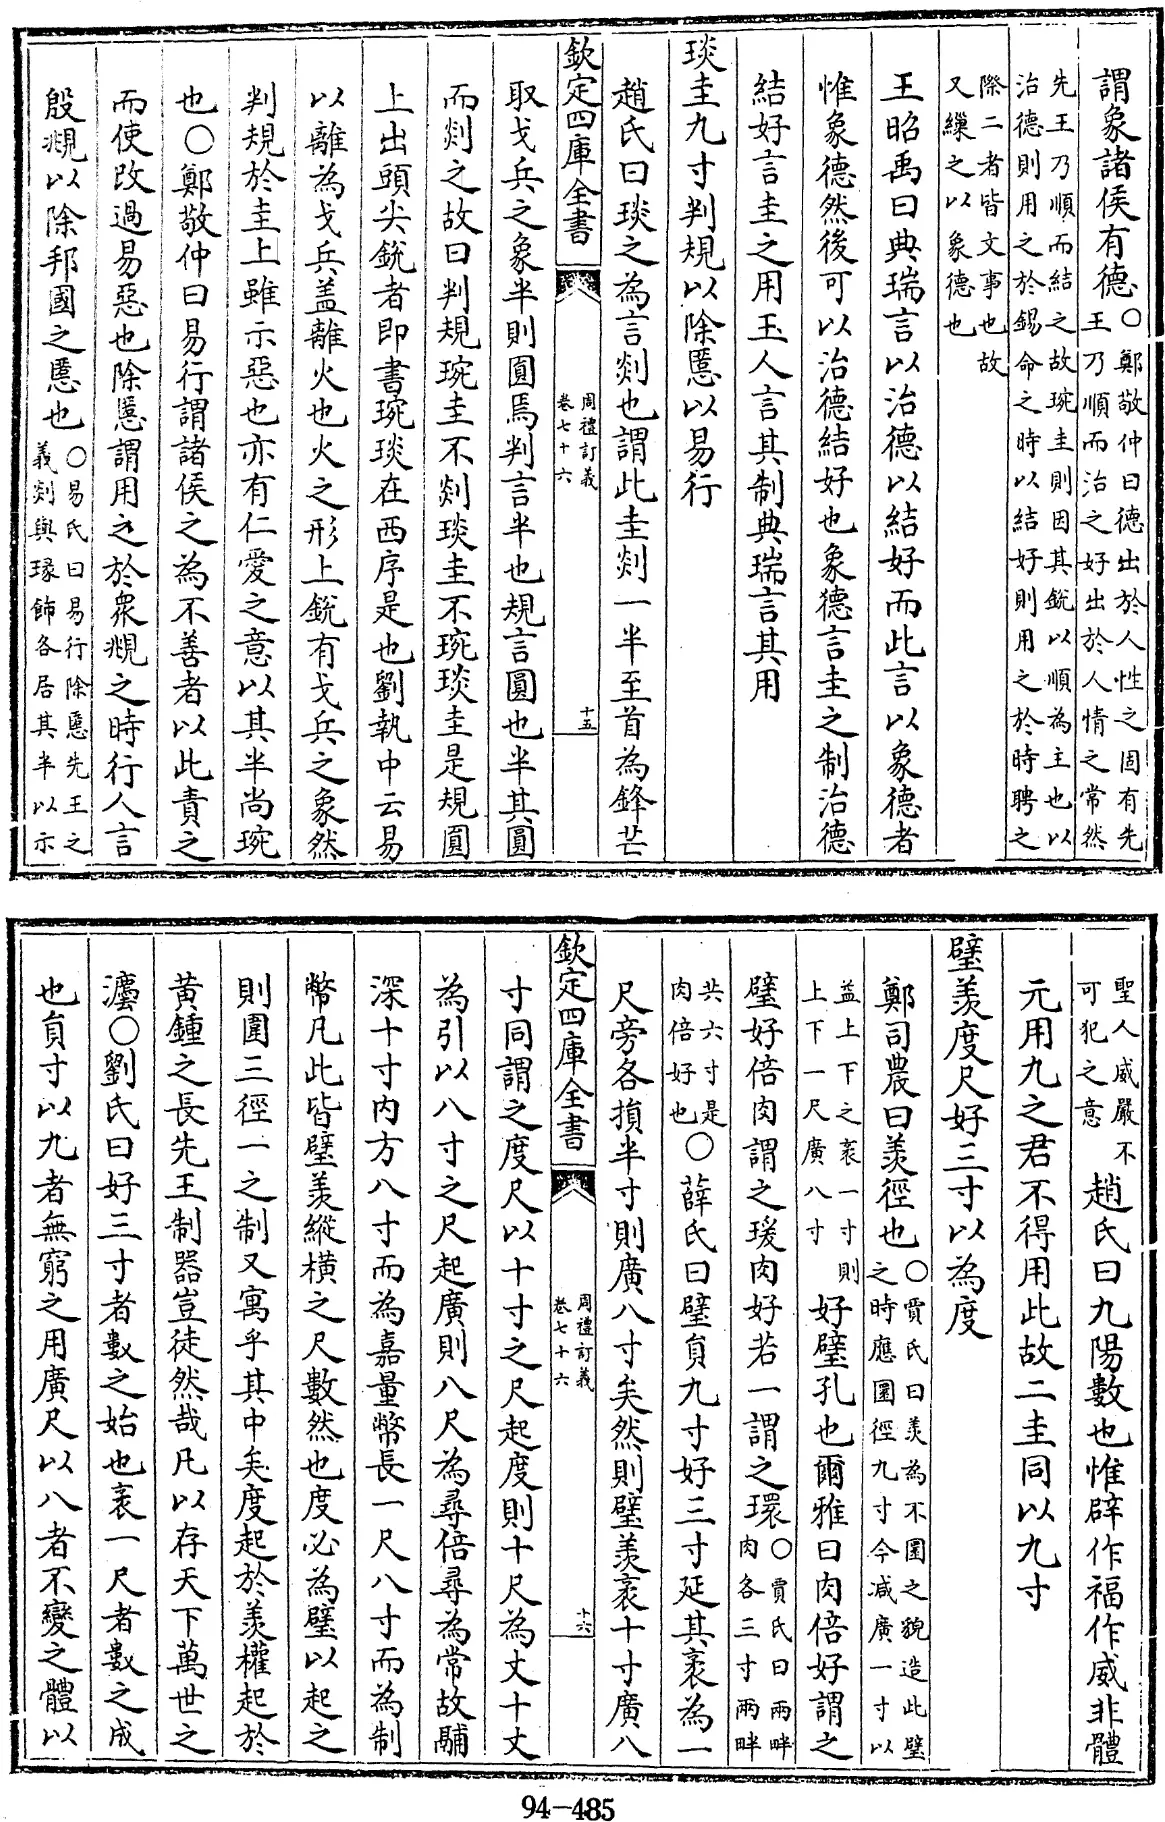 謂象諸侯有德○鄭敬仲曰德出於人性之固有先
王乃順而治之好出於人情之常然
先王乃順而結之故琬圭則因其銳以順為主也以
治德則用之於錫命之時以結好則用之於時聘之
際二者皆文事也故
又繅之以象德也
王昭禹曰典瑞言以治德以結好而此言以象德者
惟象德然後可以治德結好也象德言圭之制治德
結好言圭之用玉人言其制典瑞言其用
琰圭九寸判規以除慝以易行
趙氏曰琰之為言剡也謂此圭剡一半至首為鋒芒
欽定四庫全書
周禮訂義
卷七十六
十五
取戈兵之象半則圓焉判言半也規言圓也半其圓
而剡之故曰判規琬圭不剡琰圭不琬琰圭是規圓
上出頭尖銳者即書琬琰在西序是也劉執中云易
以離為戈兵盖離火也火之形上銳有戈兵之象然
判規於圭上雖示惡也亦有仁愛之意以其半尚琬
也○鄭敬仲曰易行謂諸侯之為不善者以此責之
而使改過易惡也除慝謂用之於衆覜之時行人言
殷覜以除邦國之慝也○易氏曰易行除慝先王之
義剡與瑑飾各居其半以示
聖人威嚴不
可犯之意
趙氏曰九陽數也惟辟作福作威非體
元用九之君不得用此故二圭同以九寸
璧羡度尺好三寸以為度
鄭司農曰羡徑也○賈氏曰羡為不圜之貌造此璧
之時應圜徑九寸今减廣一寸以
益上下之袤一寸則
上下一尺廣八寸
好璧孔也爾雅曰肉倍好謂之
璧好倍肉謂之瑗肉好若一謂之環○賈氏曰兩畔
肉各三寸兩畔
共六寸是
肉倍好也
○薛氏曰璧員九寸好三寸延其袤為一
尺旁各損半寸則廣八寸矣然則璧羡袤十寸廣八
欽定四庫全書
周禮訂義
卷七十六
十六
寸同謂之度尺以十寸之尺起度則十尺為丈十丈
為引以八寸之尺起廣則八尺為尋倍尋為常故鬴
深十寸内方八寸而為嘉量幣長一尺八寸而為制
幣凡此皆璧羡縱横之尺數然也度必為璧以起之
則圍三徑一之制又寓乎其中矣度起於羡權起於
黄鍾之長先王制器豈徒然哉凡以存天下萬世之
灋○劉氏曰好三寸者數之始也袤一尺者數之成
也員寸以九者無窮之用廣尺以八者不變之體以
94-485